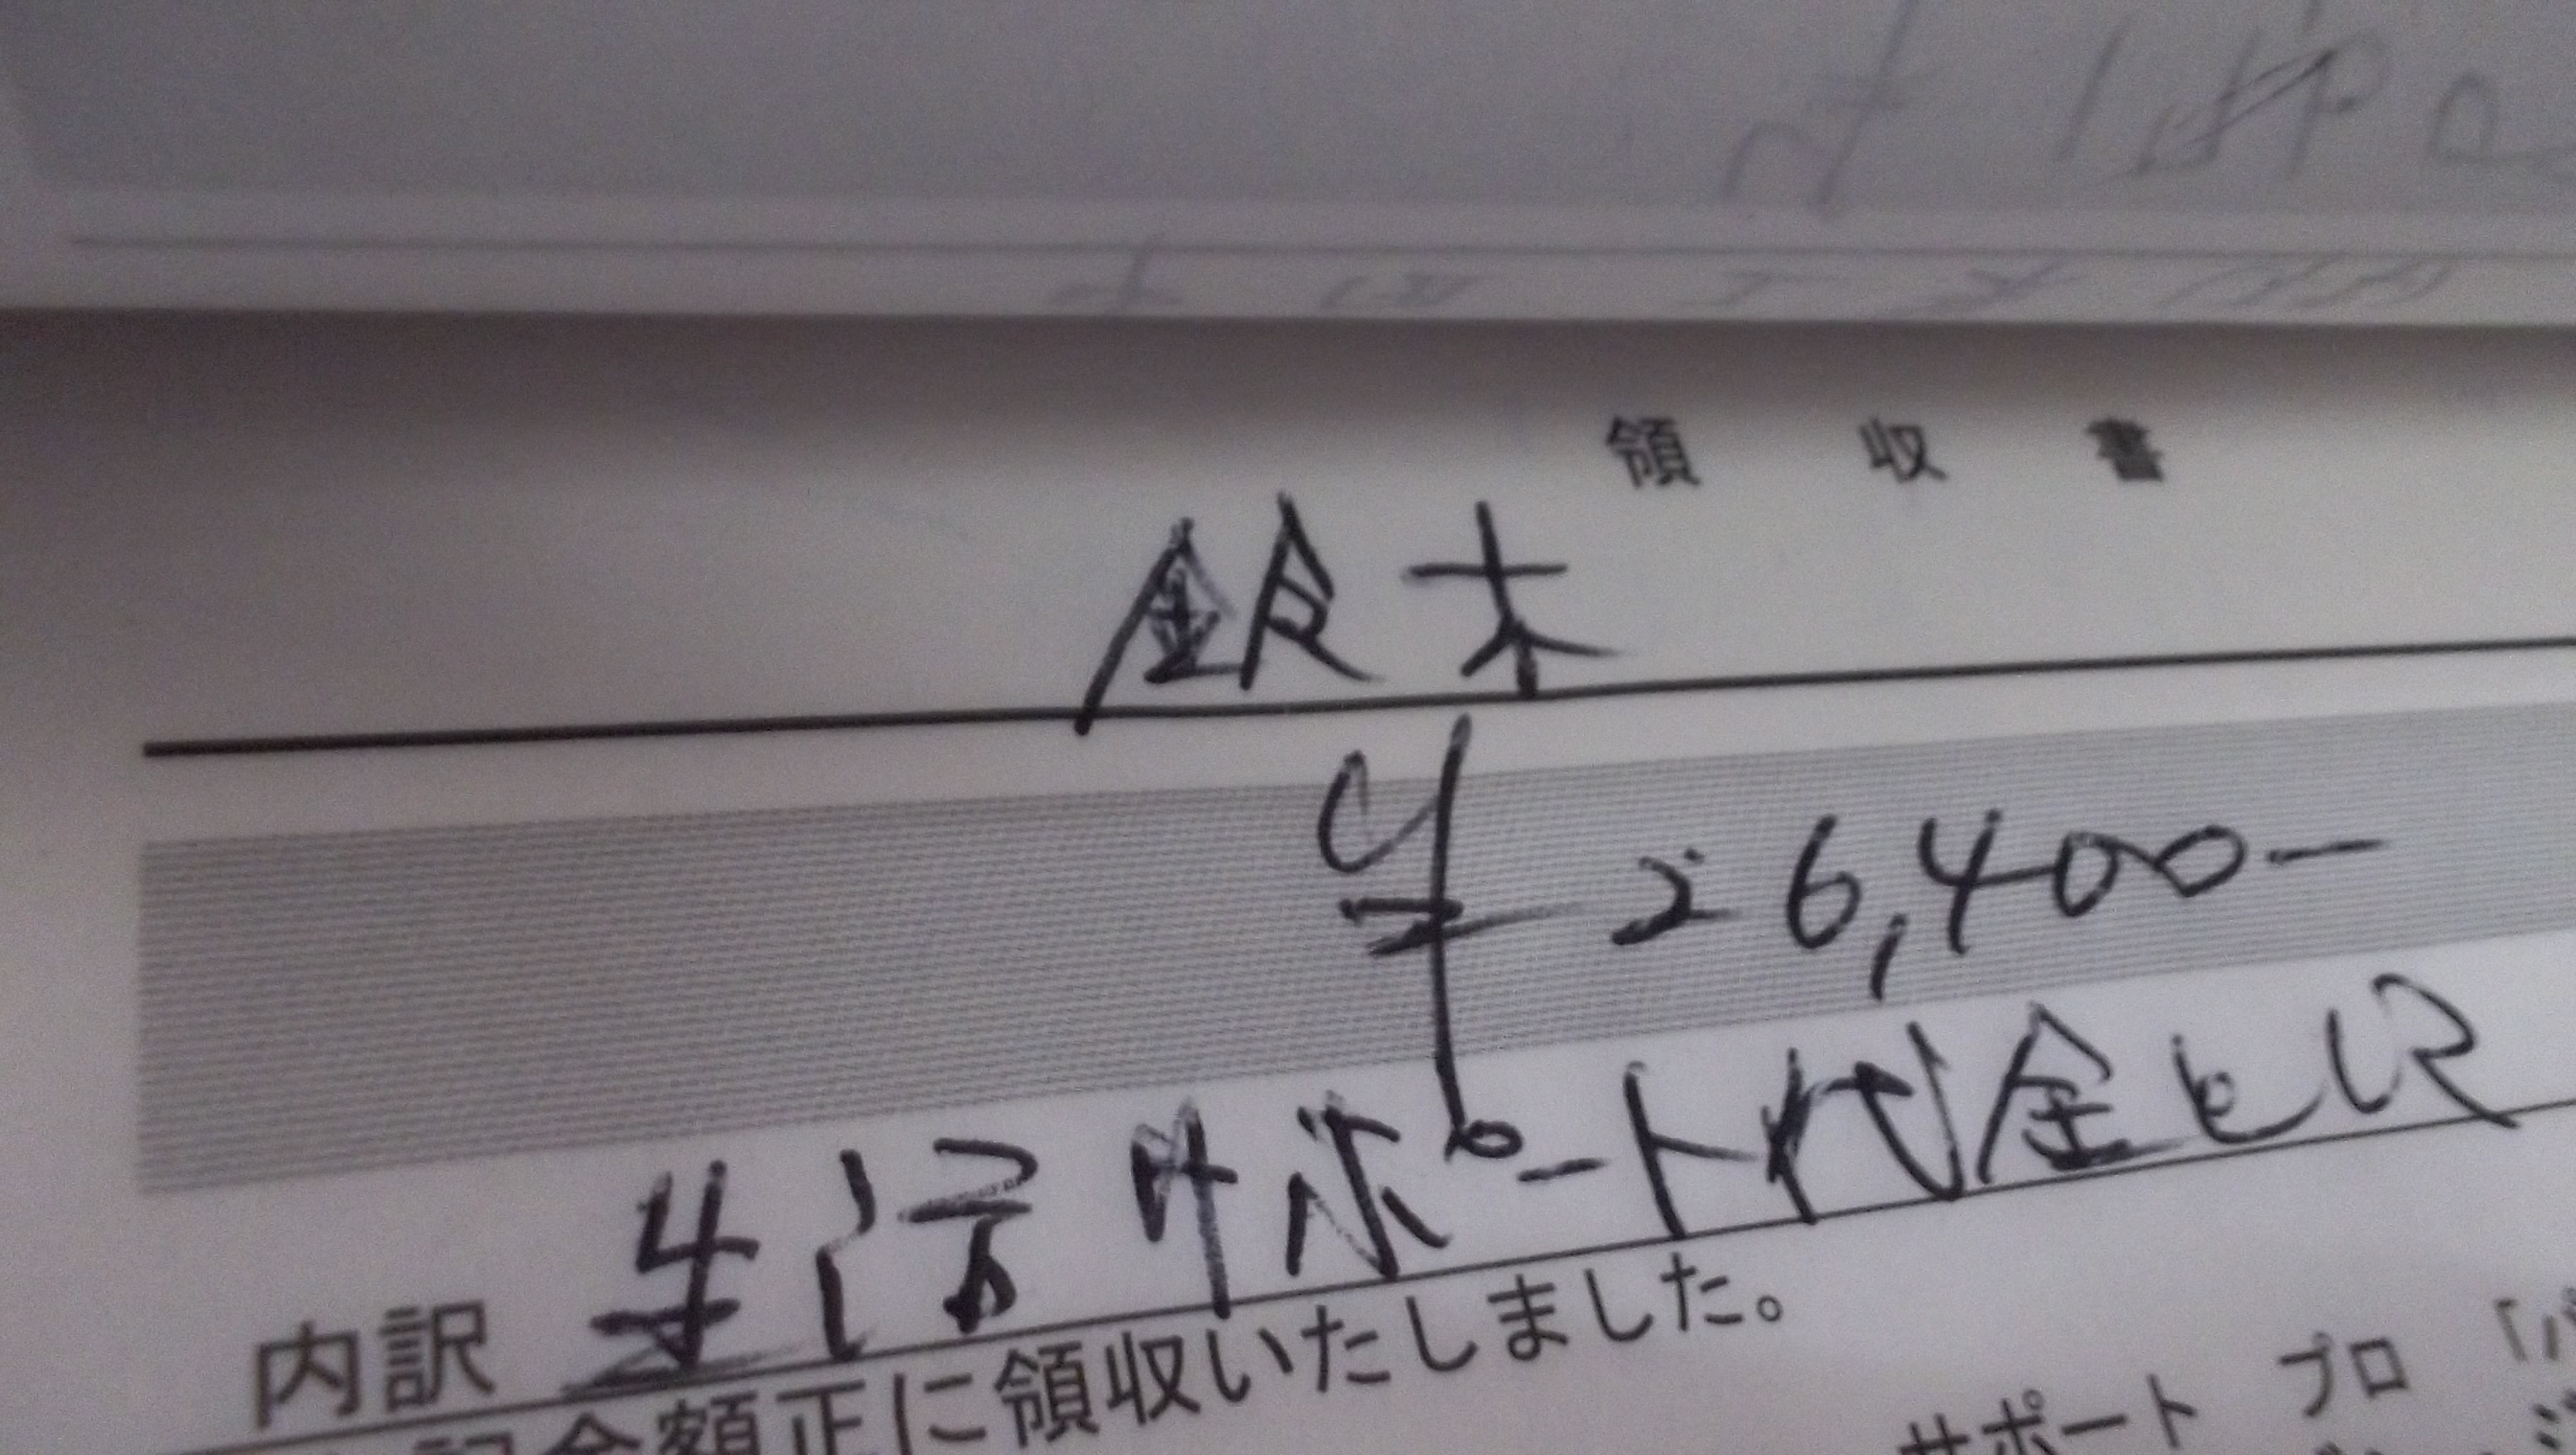 領収書
鈴木
¥26,400-
内訳 生活サポート代金として
記金額正に領収いたしました。
サポート プロ